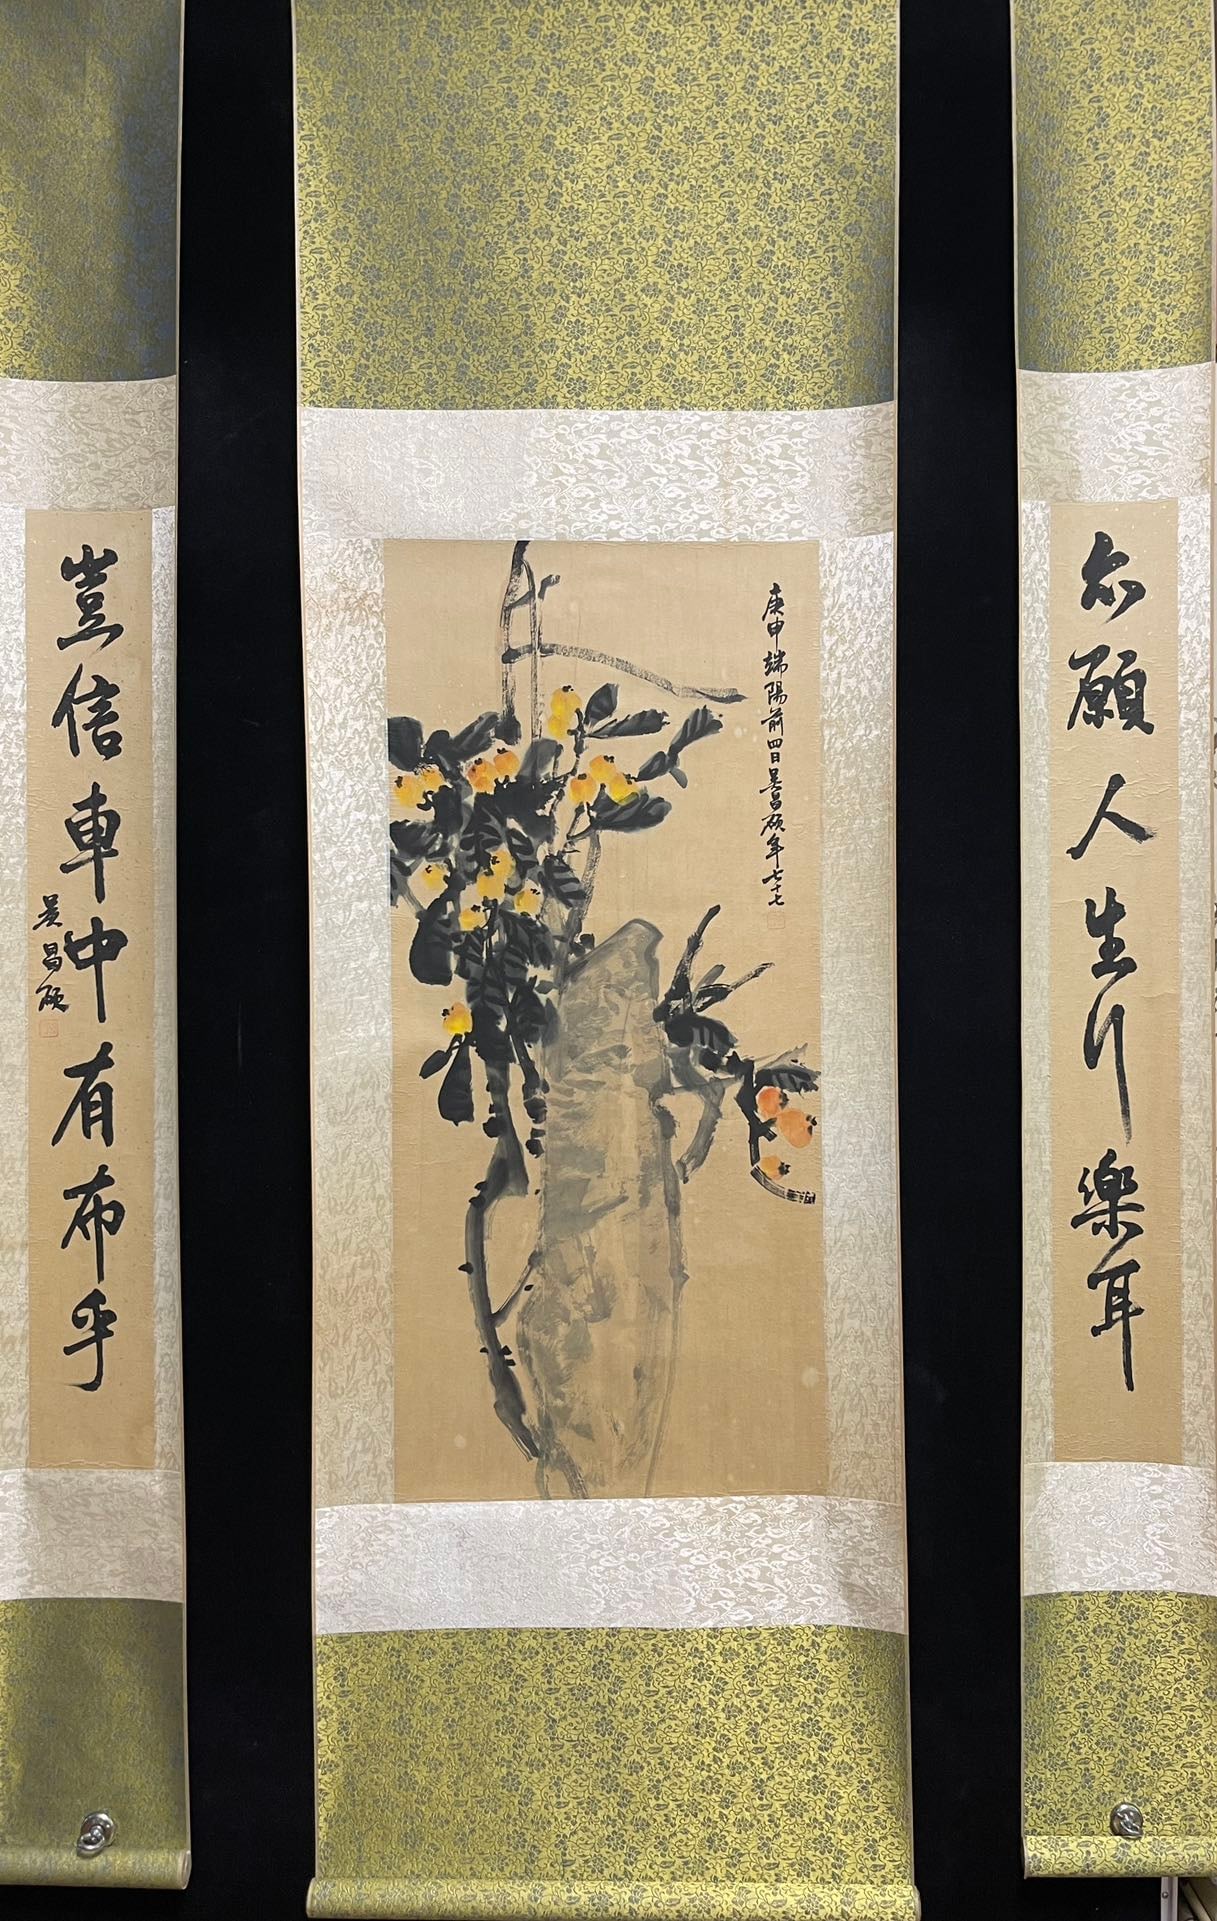 尔願人生行樂耳
庚申端陽前四日吳昌碩年七十七
豈信車中有布乎
吳昌碩